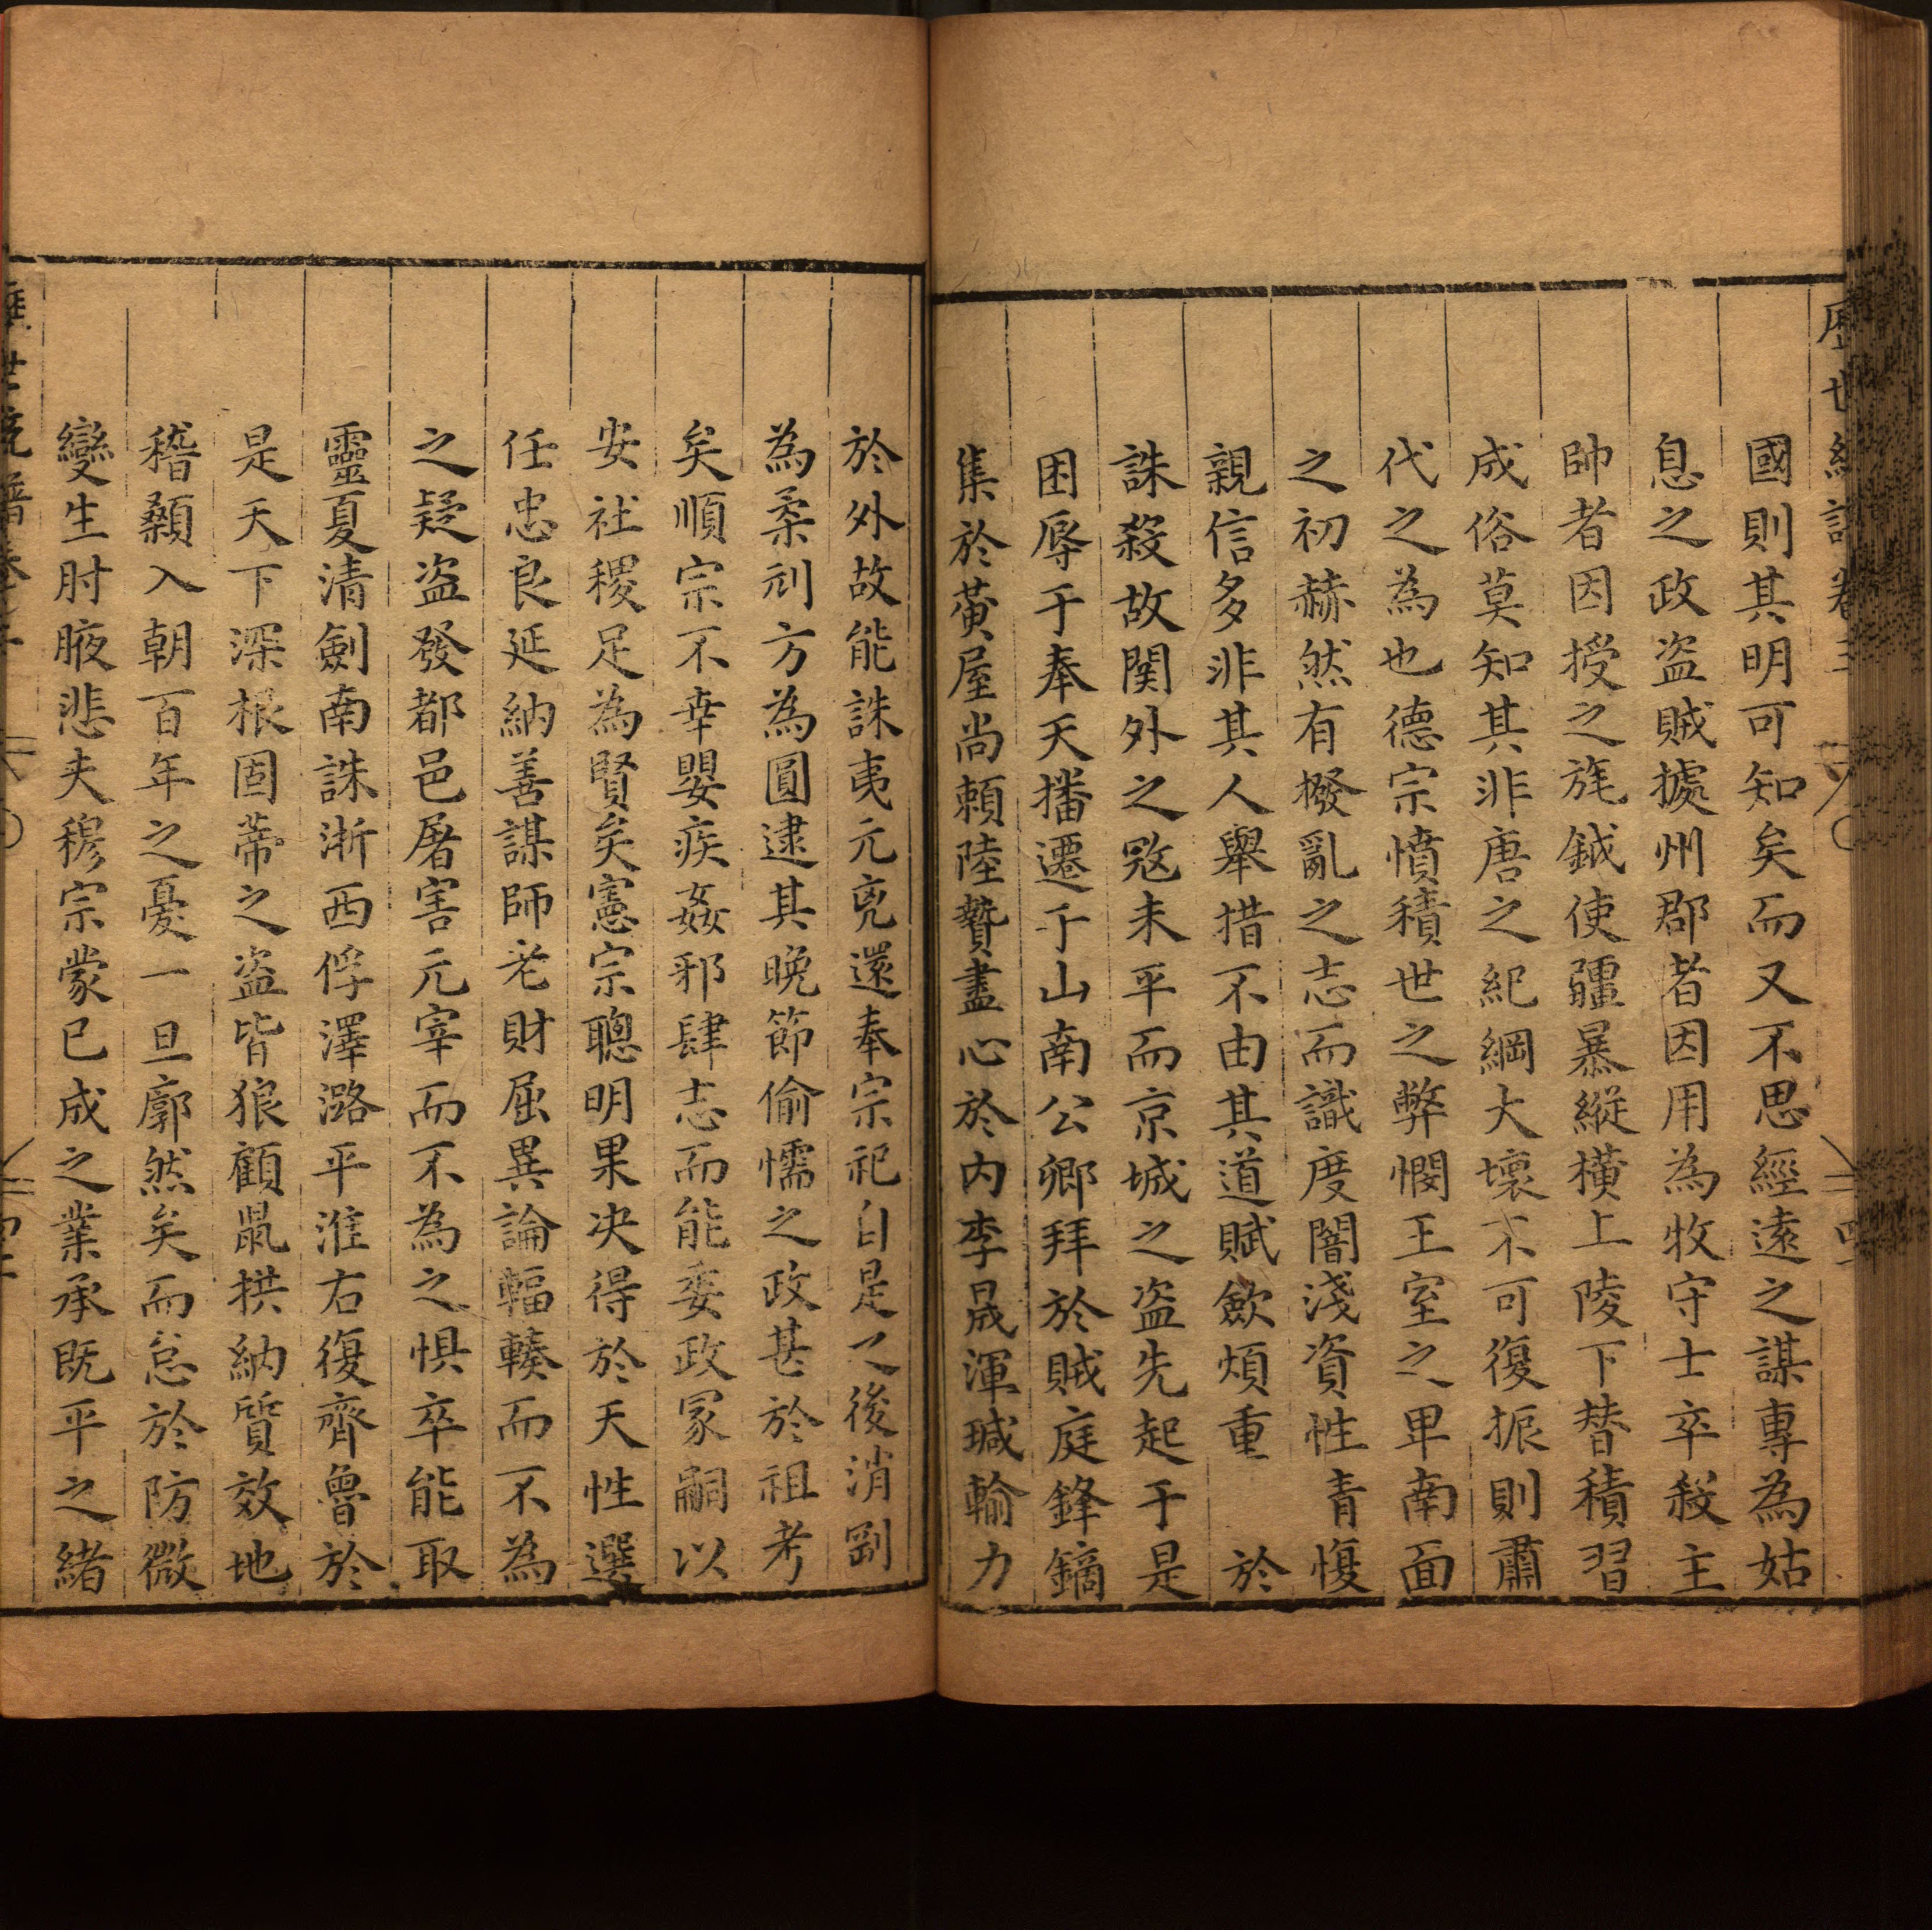 國則其明可知矣而又不思經遠之謀專為姑
息之政盗賊據州郡者因用為牧守士卒殺主
帥者因授之旄鉞使疆暴縱橫上陵下替積習
成俗莫知其非唐之紀綱大壞不可復振則肅
代之為也德宗憤積世之弊憫王室之卑南面
之初赫然有撥亂之志而識度闇淺資性青愎
親信多非其人舉措不由其道賦歛煩重於
誅殺故関外之冦未平而京城之盗先起于是
困辱于奉天播遷于山南公卿拜於賊庭鋒鏑
集於黄屋尚頼陸贄盡心於内李晟渾瑊輸力
於外故能誅夷元兇還奉宗祀自是之後消剛
為柔刓方為圓逮其晚節偷懦之政甚於祖考
矣順宗不幸嬰疾姦邪肆志而能委政冡嗣以
安社稷足為賢矣憲宗聰明果决得於天性選
任忠良延納善謀師老財屈異論輻輳而不為
之疑盗發都邑屠害元宰而不為之惧卒能取
靈夏清劍南誅浙西俘澤潞平淮右復齊魯於
是天下深根固蒂之盗皆狼顧鼠拱納質效地
稽顙入朝百年之憂一旦廓然矣而怠於防微
變生肘腋悲夫穆宗蒙已成之業承既平之緒